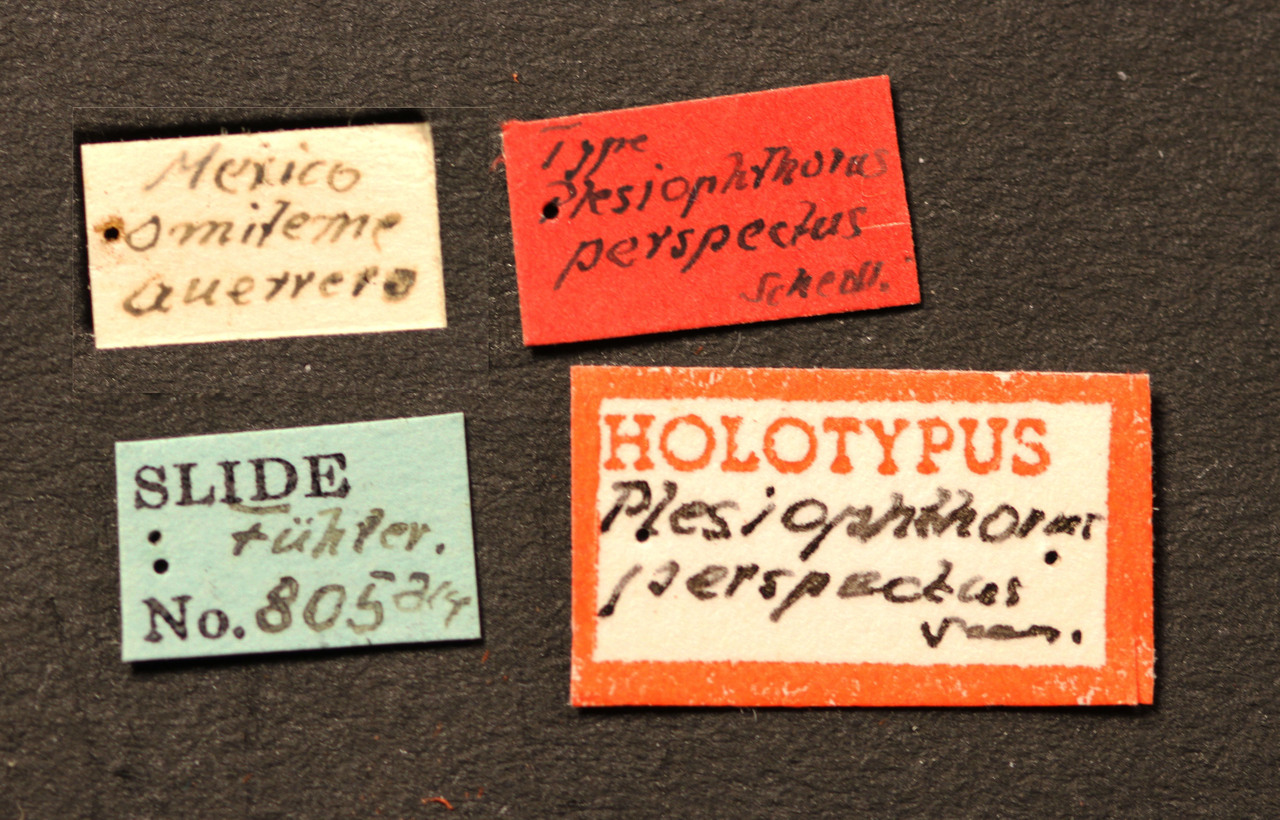 Mexico
omiteme
Guerrero
Type
Plesiophthorus
perspectus
Schedl.
SLIDE
Fühler.
No. 805
HOLOTYPUS
Plesiophthorus
perspectus